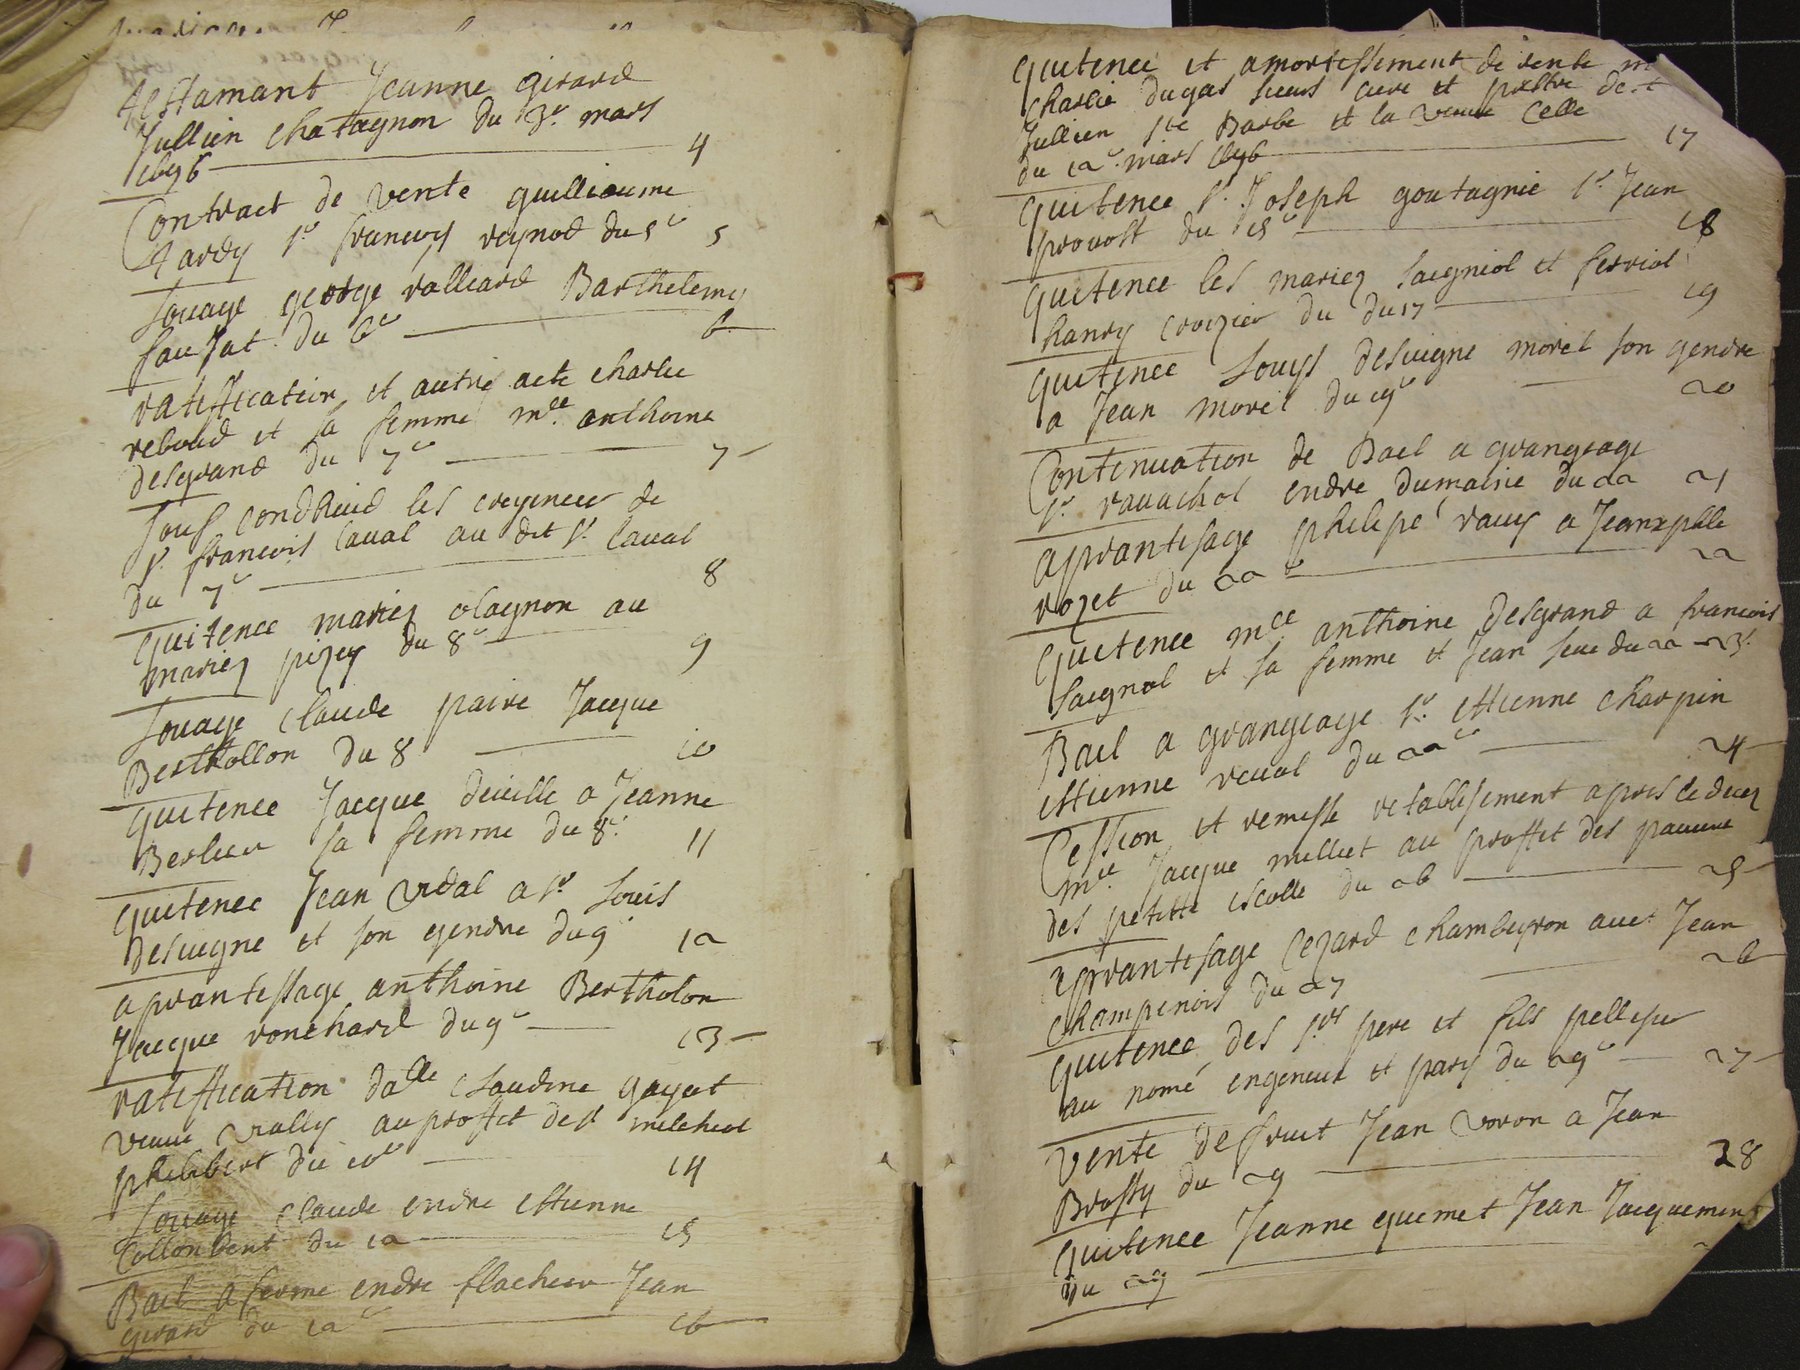 testamant Jeanne girard
Jullien chatagnon du 3e mars
1696 4
Contract de vente guillioume
tardy sr francoys reynod du 5e 5
Louage george valleard Barthelemy
faujat du 6e 6
ratiffication et autre acte charle
reboud et sa femme mce anthoine
desgrand du 7e 7
sr francois laual au dit sr laual
du 7e 8
quitence mariez olagnon au
mariez pizey du 8e 9
Louage Claude paire Jacque
Berthollon du 8 10
quitence Jacque deuille a Jeanne
Berlier sa femme du 8e 11
quitence Jean vidal a sr Louis
desuigne et son gendre du 9 12
aprantissage anthoine Bertholon
Jacque ronchard du 9e 13
ratiffication dalle Claudine gayot
veuue vially au proffit de sr melchiol
philibert du 10e 14
Louage Claude endre ettienne
Collonbent du 12 15
Bail a ferme endre flacheur Jean
girard du 12e 16
quitence et amortissement de rente
charle dugas sieurs cure et prestre de st
Jullien ste Barbe et la veuue Celle
du 12e mars 1696 17
quitence sr Joseph goutagnie sr Jean
prouost du 15e 18
quitence les mariez saigniol et ferriol
hanry crozier du du 17 19
quitence Louys desuigne morel son gendre
a Jean morel du 19e 20
Contenuation de Bail a grangeage
sr rauachol endre dumaine du 22 21
aprantisage philipe rauy a Jean
rozet du 22e 22
quitence mce anthoine desgrand a francois
saignol et sa femme et Jean seue du 22 23
Bail a grangeage sr ettienne charpin
ettienne reual du 22e 24
Cession et remisse retablisement apres le decez
mre Jacque millet au proffit des pauure
des petitte escolle du 26 25
aprantisage Cezard chambeyron auec Jean
champenois du 27 26
quitence des srs pere et fils pellisier
au nomé engeneur et pary du 29e 27
vente de fruit Jean voron a Jean
Brossy du 29 28
quitence Jeanne quemet Jean Jacquemont
du 29